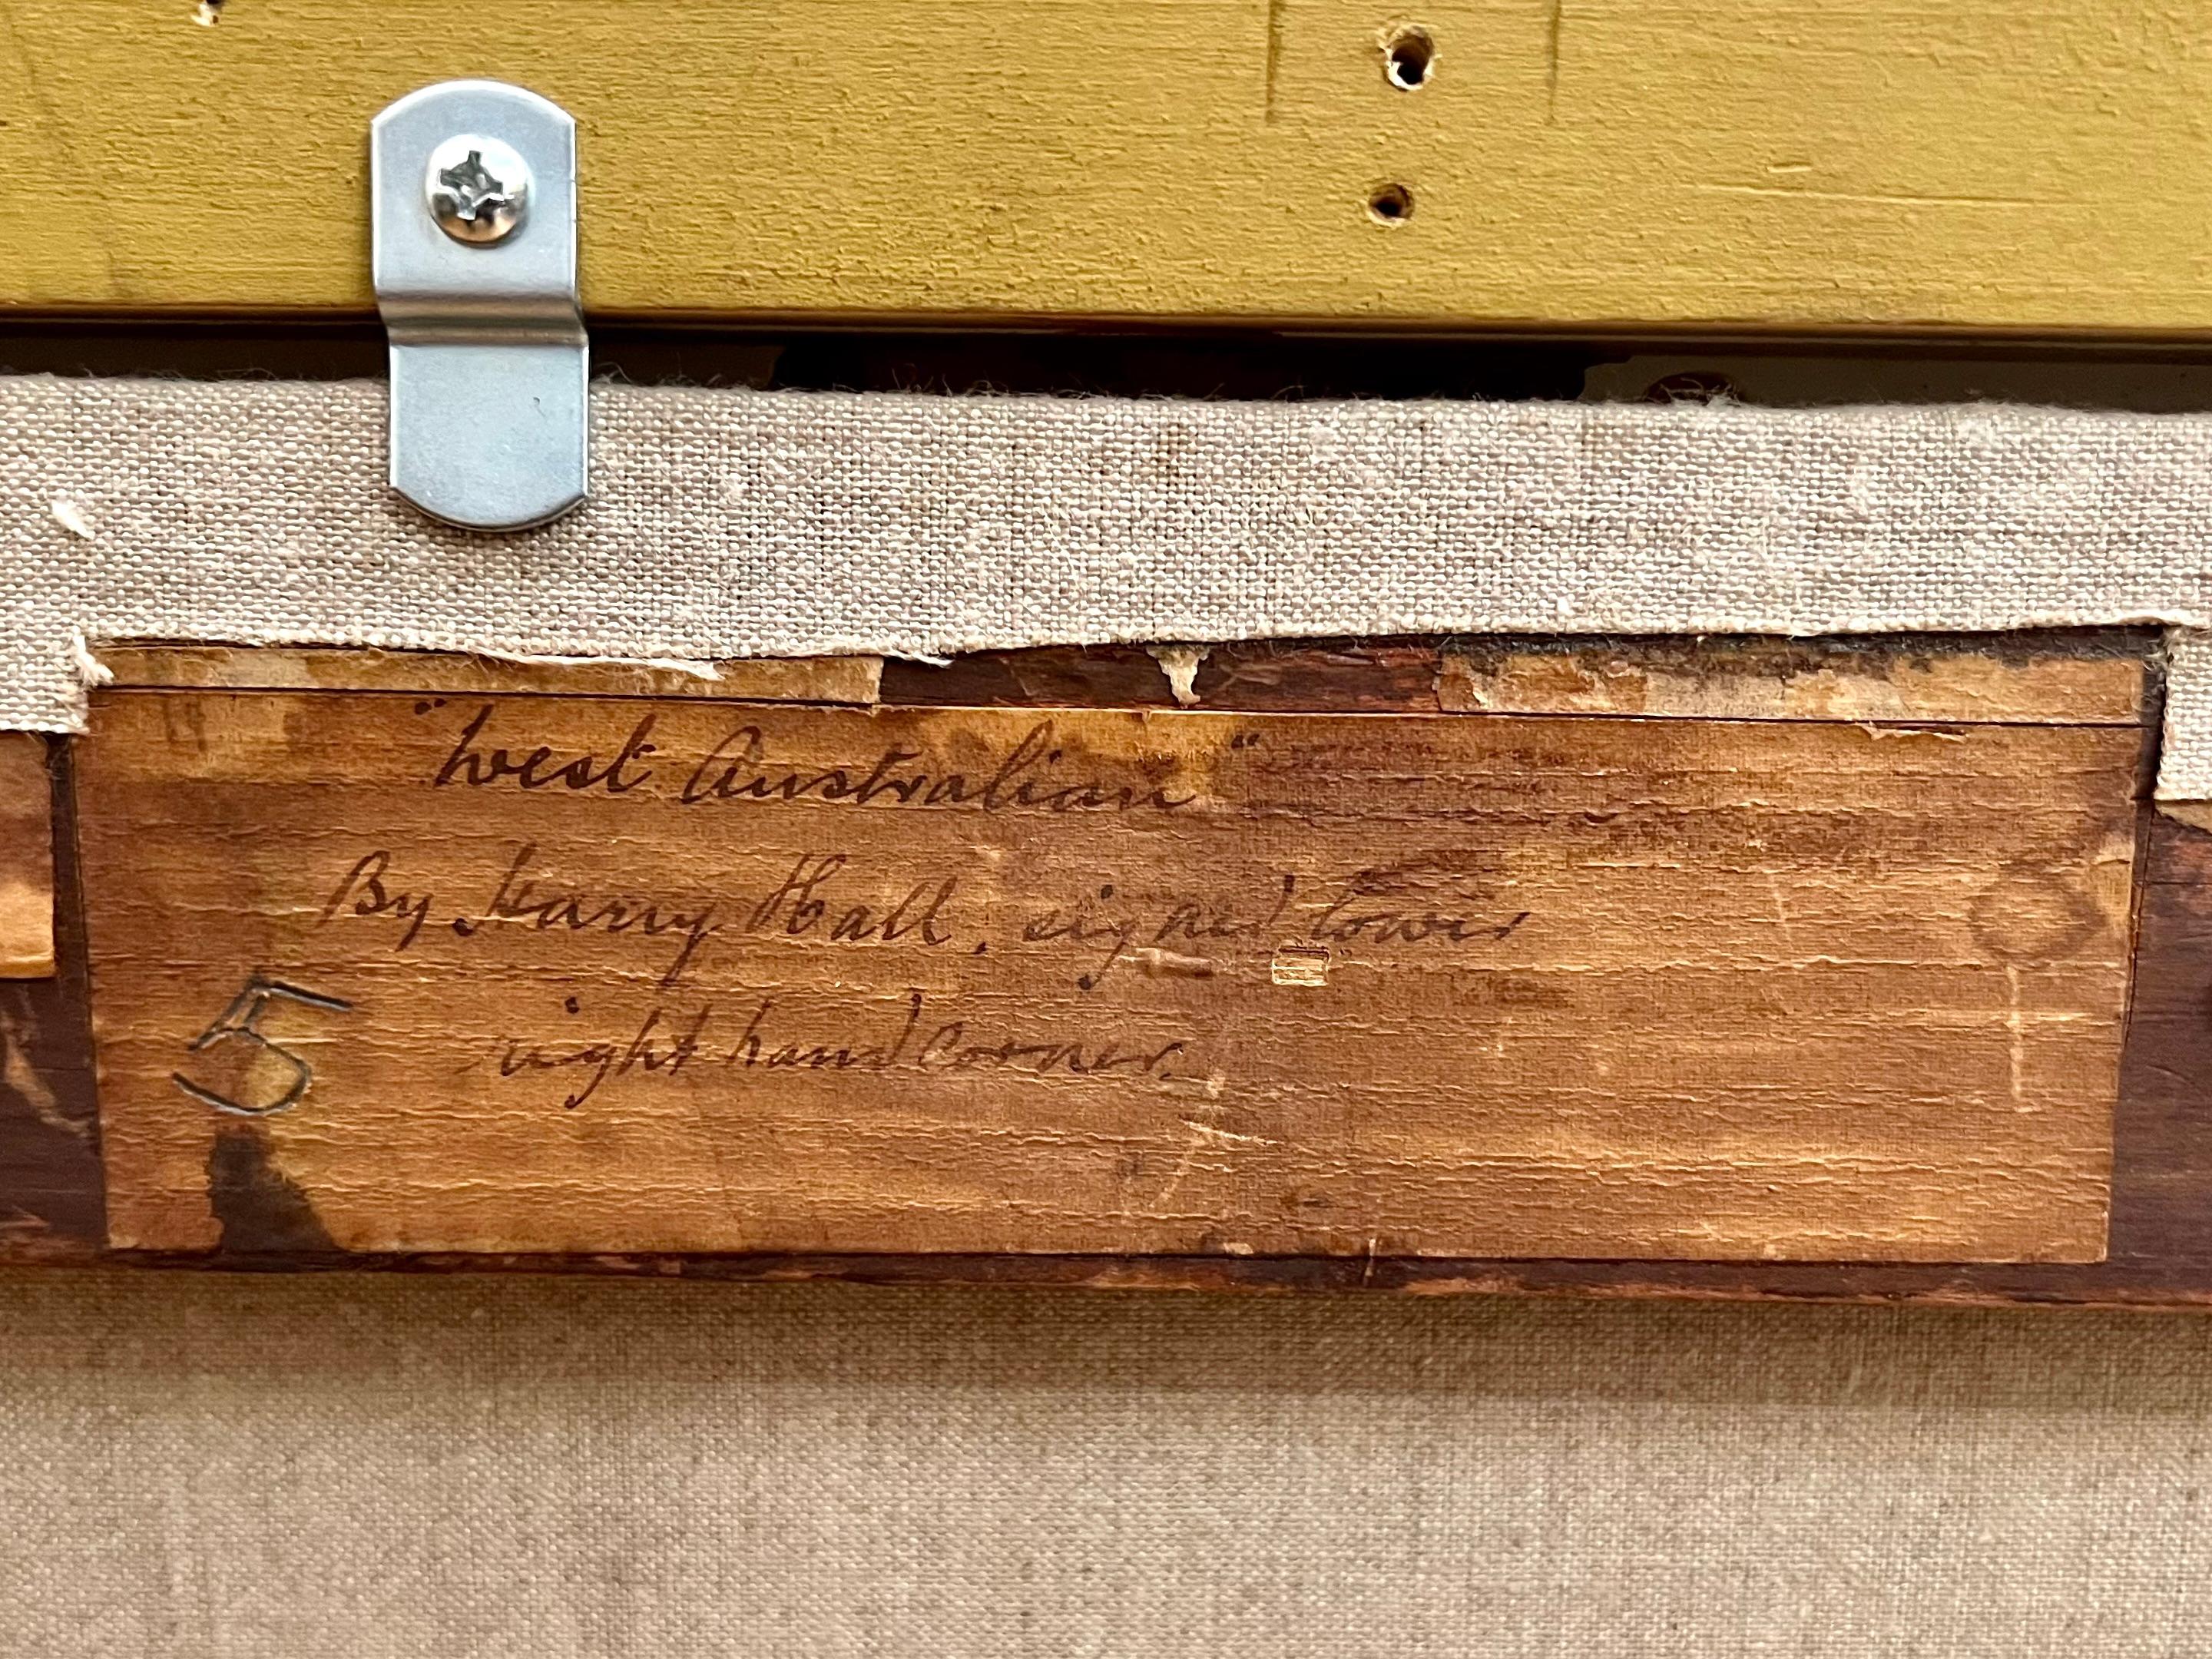 "West Australian"
By Harry Hall, signed lower
right hand corner.
5